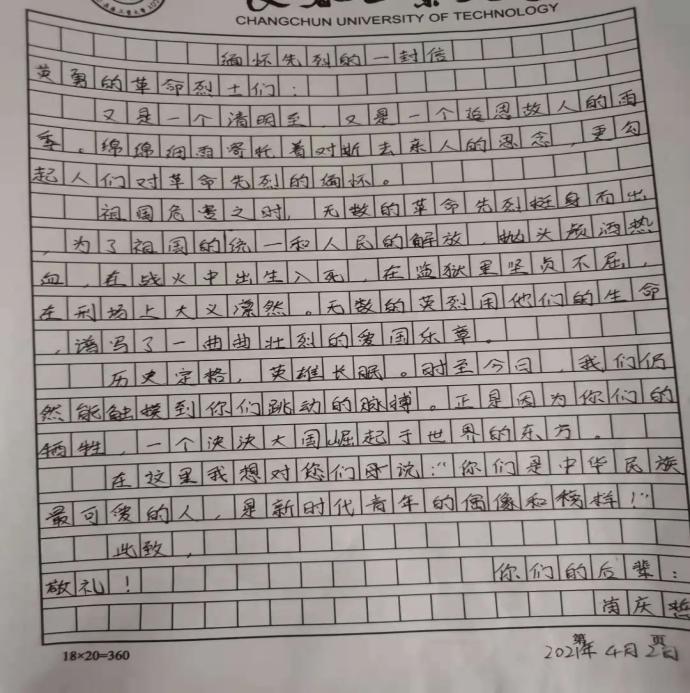 CHANGCHUN UNIVERSITY OF TECHNOLOGY
缅怀先烈的一封信
英勇的革命烈士们：
又是一个清明至，又是一个追思故人的雨
季。绵绵细雨寄托着对逝去亲人的思念，更勾
起人们对革命先烈的缅怀。
祖国危难之时，无数的革命先烈挺身而出
，为了祖国的统一和人民的解放，抛头颅洒热
血，在战火中出生入死，在监狱里坚贞不屈，
在刑场上大义凛然。无数的英烈用他们的生命
，谱写了一曲曲壮烈的爱国乐章。
历史定格，英雄长眠。时至今日，我们仍
然能触摸到你们跳动的脉搏。正是因为你们的
牺牲，一个泱泱大国崛起于世界的东方。
在这里我想对您们说："你们是中华民族
最可爱的人，是新时代青年的偶像和榜样！"
此致，
敬礼！
你们的后辈：
庆
18×20=360
第 页
2021年4月2日